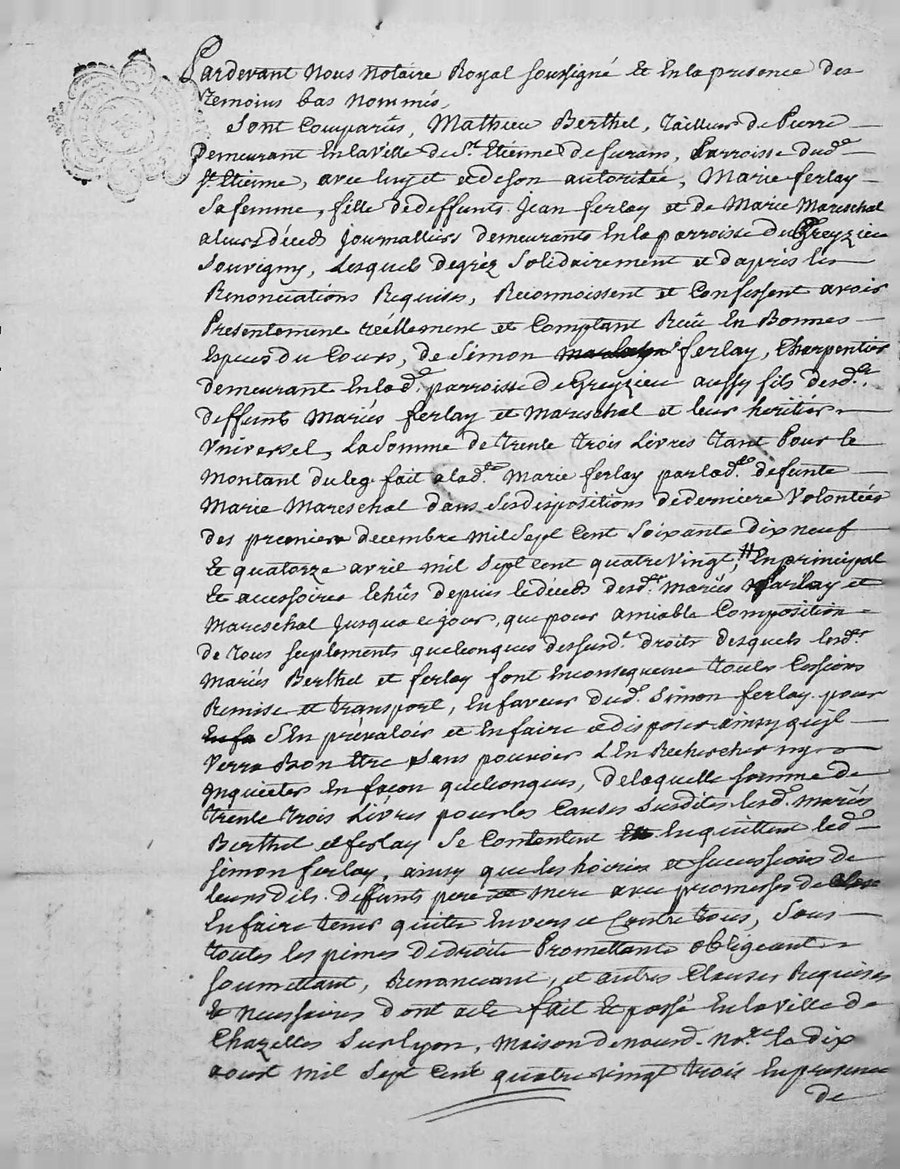 Pardevant Nous Notaire Royal soussigné et En la presence des
temoins bas nommés,
Sont Comparûs, Mathieu Berthel, tailleur de Pierre
Demeurant En la Ville de St. Etienne de furans, Parroisse dud.
St Etienne, avec luy et et de son autoritée, Marie ferlay
Sa femme, fille de deffunts Jean ferlay et de Marie Mareschal
a leurs décéd Journalliers demeurants En la parroisse de Greyzieu
Souvigny, Lesquels de gréz Solidairement et d'après les
Renonciations Requises, Reconnoissent et Confessent avoir
Presentement réellement et Comptant Reçû En Bonnes
Espèces du Cours, de Simon ferlay, Charpentier
demeurant En lad. parroisse de Greyzieu aussy fils desd.
deffunts Mariés ferlay et Mareschal et leur heritier
Vniversel, La Somme de trente trois Livres tant Pour le
Montant du leg fait a lad. Marie ferlay par lad. defunte
Marie Mareschal dans Ses dispositions de derniere Volontées
des premier decembre Mil Sept Cent Soixante dix neuf
Et quatorze avril mil Sept cent quatre Vingt, En principal
Et accessoires Echûs depuis le décéd desd. Mariés ferlay et
Mareschal Jusqu'a ce jour, que pour amiable Composition
de tous Suplements quelconques desfusd. droits desquels lesd.
Mariés Berthel et ferlay font En consequence toutes Cessions
Remise et transport, En faveur dud. Simon ferlay pour
S'En prévaloir et En faire et disposer ainsy qu'il
Verra Bon Etre Sans pouvoir L'En Rechercher ny
Inquieter En façon quelconques, de laquelle Somme de
trente trois Livres pour les Causes Susdites lesd. Mariés
Berthel et ferlay Se Contentent En quittent led.
Simon ferlay, ainsy que les hoiries et Successions de
leursdits deffunts pere et mere avec promesses de
En faire tenir quitte Envers et Contre tous, Sous
toutes les peines de droits Promettants obligeant
Soumettant, Renoncant, et autres Clauses Requises
& Necessaires dont acte fait Et passé En la Ville de
Chazelles Sur Lyon, Maison de nousd. No.re le dix
aoust mil Sept Cent quatre Vingt trois En presence
de